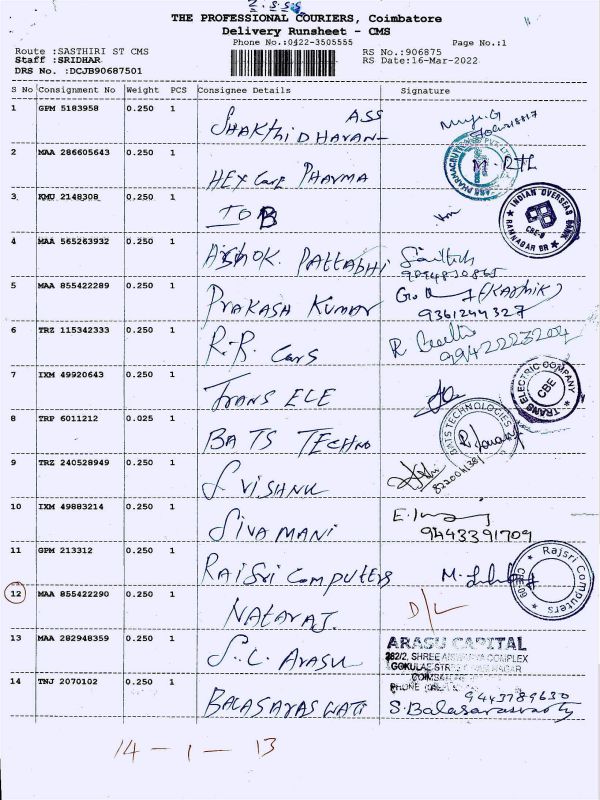 THE PROFESSIONAL COURIERS, Coimbatore
Delivery Runsheet - CMS
Phone No.:0422-3505555
Page No.:1
Route :SASTHIRI ST CMS
Staff :SRIDHAR
DRS No. :DCJB90687501
RS No.:906875
RS Date:16-Mar-2022
S No Consignment No Weight PCS Consignee Details Signature
1 GPM 5183958 0.250 1 SHAKTHIDHARAN ASS
2 MAA 286605643 0.250 1 HEX Care PHARMA M.
3 KMU 2148308 0.250 1 IOB INDIAN OVERSEAS BANK RAMNAGAR BR CBE-9
4 MAA 565263932 0.250 1 ASHOK. PATTABHI
5 MAA 855422289 0.250 1 PRAKASH KUMAR (Karthik)
9361244327
6 TRZ 115342333 0.250 1 R.R. Cars R
9942223204
7 IXM 49920643 0.250 1 TRANS ELE TRANS ELECTRIC COMPANY CBE
8 TRP 6011212 0.025 1 BATS TECHNO BATS TECHNOLOGIES
9 TRZ 240528949 0.250 1 S VISHNU
10 IXM 49883214 0.250 1 SIVAMANI
9443391709
11 GPM 213312 0.250 1 RAJSri COMPUTERS M. Rajsri Computers
12 MAA 855422290 0.250 1 NATARAJ. D/L
13 MAA 282948359 0.250 1 S.L. Arasu ARASU CAPITAL
14 TNJ 2070102 0.250 1 BALASARASWATI 9443789630
S. Balasaraswathy
14 - 1 - 13